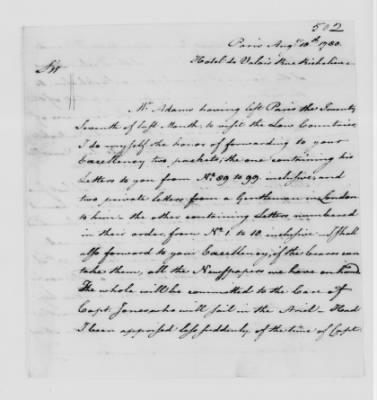 502
Paris Augt. 10th. 1780.
Hotel de Valois Rue Richelieu
Sir
Mr. Adams having left Paris the Twenty
Seventh of last Month, to visit the Low Countries,
I do myself the honor of forwarding to your
Excellency two packets; the one containing his
Letters to you from No. 89 to 99 inclusive, and
two private Letters from a Gentleman in London
to him: the other containing Letters, numbered
in their order, from No. 1 to 10 inclusive. I shall
also forward to your Excellency, if the bearer can
take them, all the Newspapers we have on hand.
The whole will be committed to the Care of
Capt. Jones who will sail in the Ariel. Had
I been apprized less suddenly of the time of Capt.